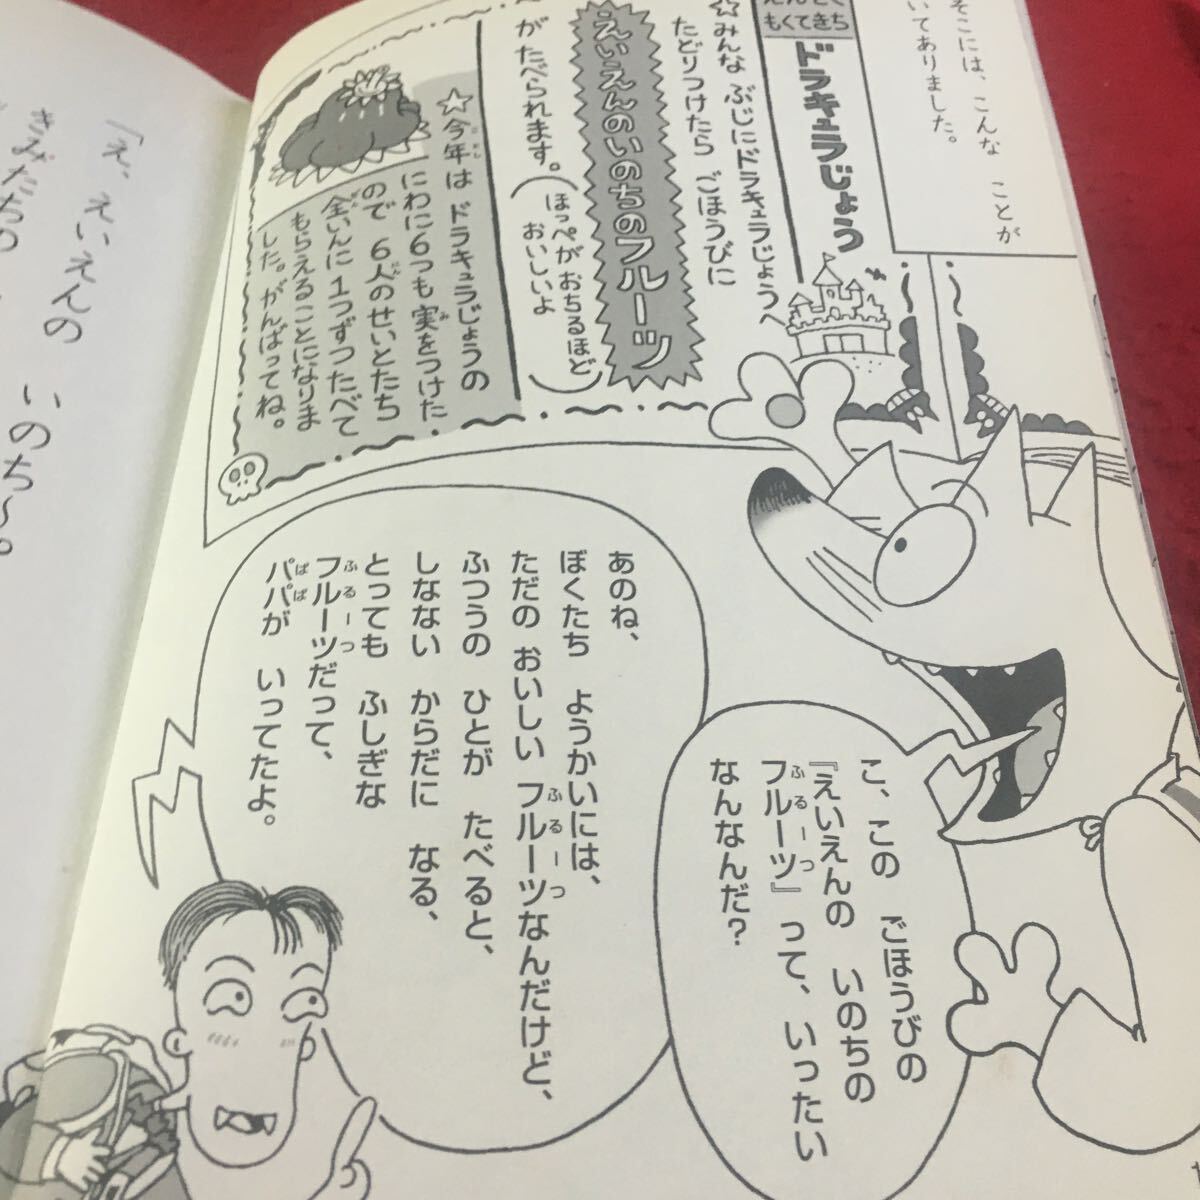 そこには、こんな　ことが
いてありました。
もくてきち
ドラキュラじょう
☆みんな ぶじにドラキュラじょうへ
たどりつけたら ごほうびに
えいえんのいのちのフルーツ
が たべられます。
(ほっぺが おちるほど
おいしいよ)
☆今年は ドラキュラじょうの
にわに6つも 実をつけた
ので 6人のせいとたち
全いんに 1つずつ たべて
もらえることになりま
した。がんばってね。
こ、この　ごほうびの
『えいえんの　いのちの
フルーツ』って、いったい
なんなんだ？
あのね、
ぼくたち　ようかいには、
ただの おいしい フルーツなんだけど、
ふつうの　ひとが　たべると、
しなない　からだに　なる、
とっても　ふしぎな
フルーツだって、
パパが　いってたよ。
「え、えいえんの　いのち〜。
きみたちの